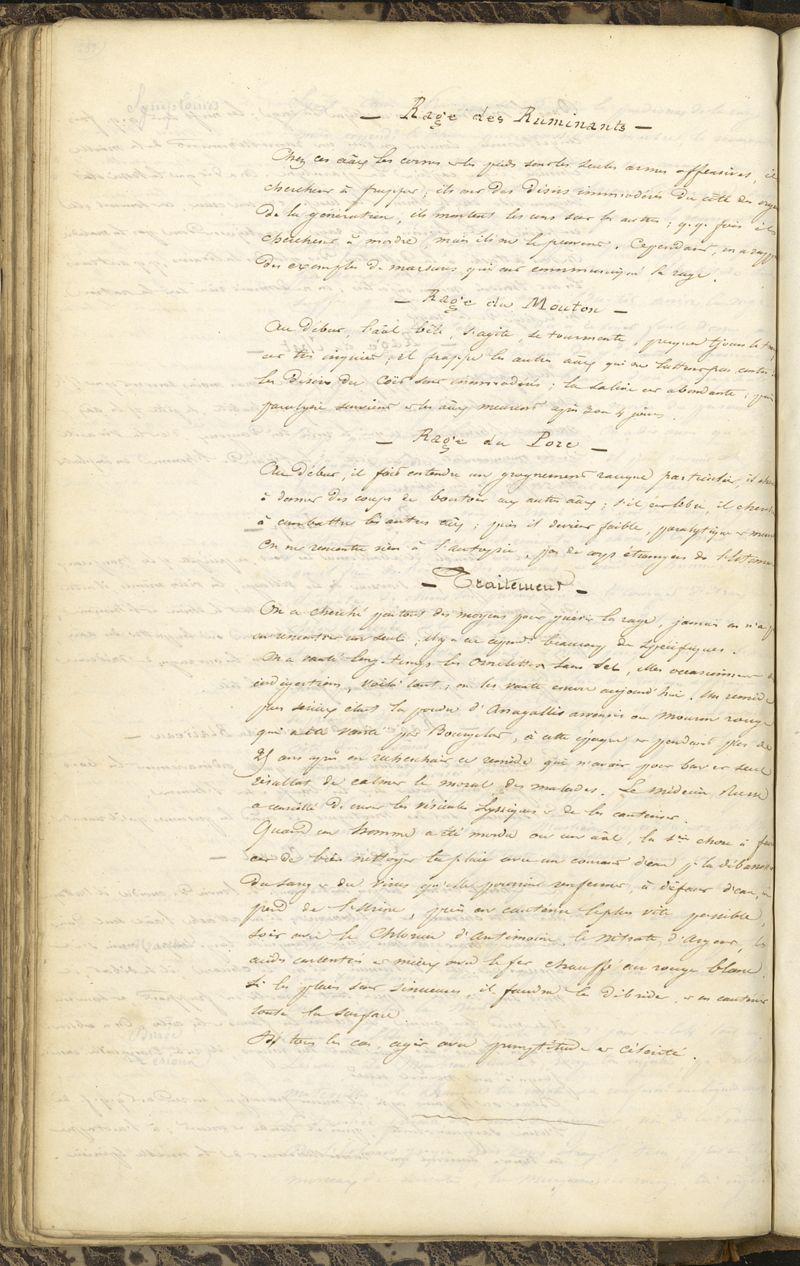 — Rage des Ruminants —
Chez ces aãux les cornes et les pieds sont les seules armes offensives, il
cherchent à frapper, ils ont des désirs immodérés du côté des org
de la génération, ils montent les uns sur les autres ; q.q. fois ils
cherchent à mordre, mais ils ne le peuvent. Cependant, on a rapp
des exemples de morsures qui ont communiqué la rage.
— Rage du Mouton —
Au début l'aãl bêle, s'agite, se tourmente, presque tjours la t
est très inquiet, il frappe les autres aãux qui ne luttent pas contre
les désirs du Coït sont immodérés ; la salive est abondante, puis
paralysie survient et les aãux meurent après 3 ou 4 jours.
— Rage du Porc —
Au début, il fait entendre un grognement rauque particulier, il cher
à donner des coups de boutoir aux autres aãux ; s'il est libre, il cherche
à combattre les autres aãux ; puis il devient faible, paralytique et meurt
On ne rencontre rien à l'autopsie, pas de corps étrangers de l'estomac
— Traitement —
On a cherché partout des moyens pour guérir la rage, jamais on n'a p
en rencontrer un seul, il y a eu cepend^t beaucoup de spécifiques.
On a vanté long-temps les omelettes sans sel, elles occasionnent d
indigestions, voilà tout ; on les vante encore aujourd'hui. Un remède
plus sérieux était la poudre d'Anagallis arvensis ou mouron rouge
qui a été vanté par Bourgelat, à cette époque et pendant plus de
25 ans après on recherchait ce remède qui n'avait pour but et seul
résultat de calmer le moral des malades. Le médecin Russe
a conseillé d'ouvrir les vésicules lyssiques et de les cautériser.
Quand un homme a été mordu ou un aãl, la 1^ère chose à faire
est de bien nettoyer la plaie avec un courant d'eau p^r la débarrasser
du sang et du virus qu'elle pourrait renfermer, à défaut d'eau, on
prend de l'urine, puis on cautérise le plus vite possible,
soit avec le Chlorure d'Antimoine, le nitrate d'Argent, les
acides concentrés et mieux avec le fer chauffé au rouge blanc.
Si les plaies sont sinueuses, il faudra les débrider, et en cautériser
toute la surface.
Ds tous les cas, agir avec promptitude et célérité.